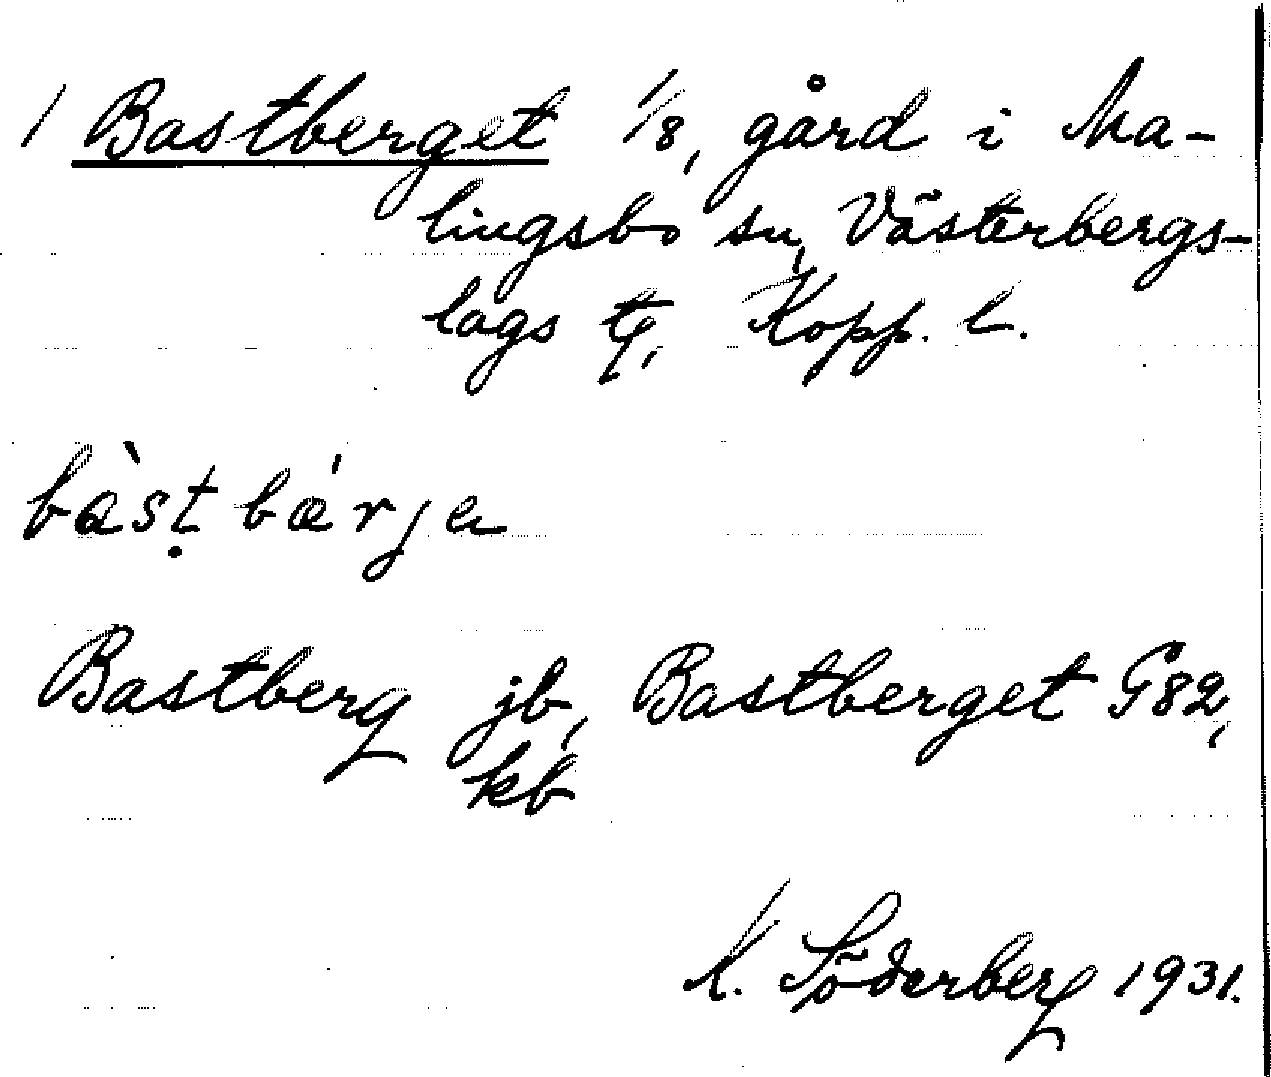 1 Bastberget 1/8, gård i Ma-
lingsbo sn, Västerbergs-
lags tg, Kopp. l.
bàsṭbárja
Bastberg jb, Bastberget G82,
kb
K. Söderberg 1931.